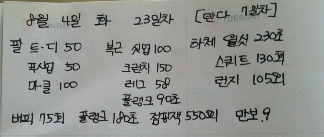 8월 4일 화 23일차 [만다 7월차]
팔 트·디 50 복근 싯업 100 하체 월싯 230초
푸시업 50 크런치 150 스쿼트 130회
마·클 100 레그 58 런지 105회
플랭크 90초
버피 75회 플랭크 180초 점핑잭 550회 만보.9